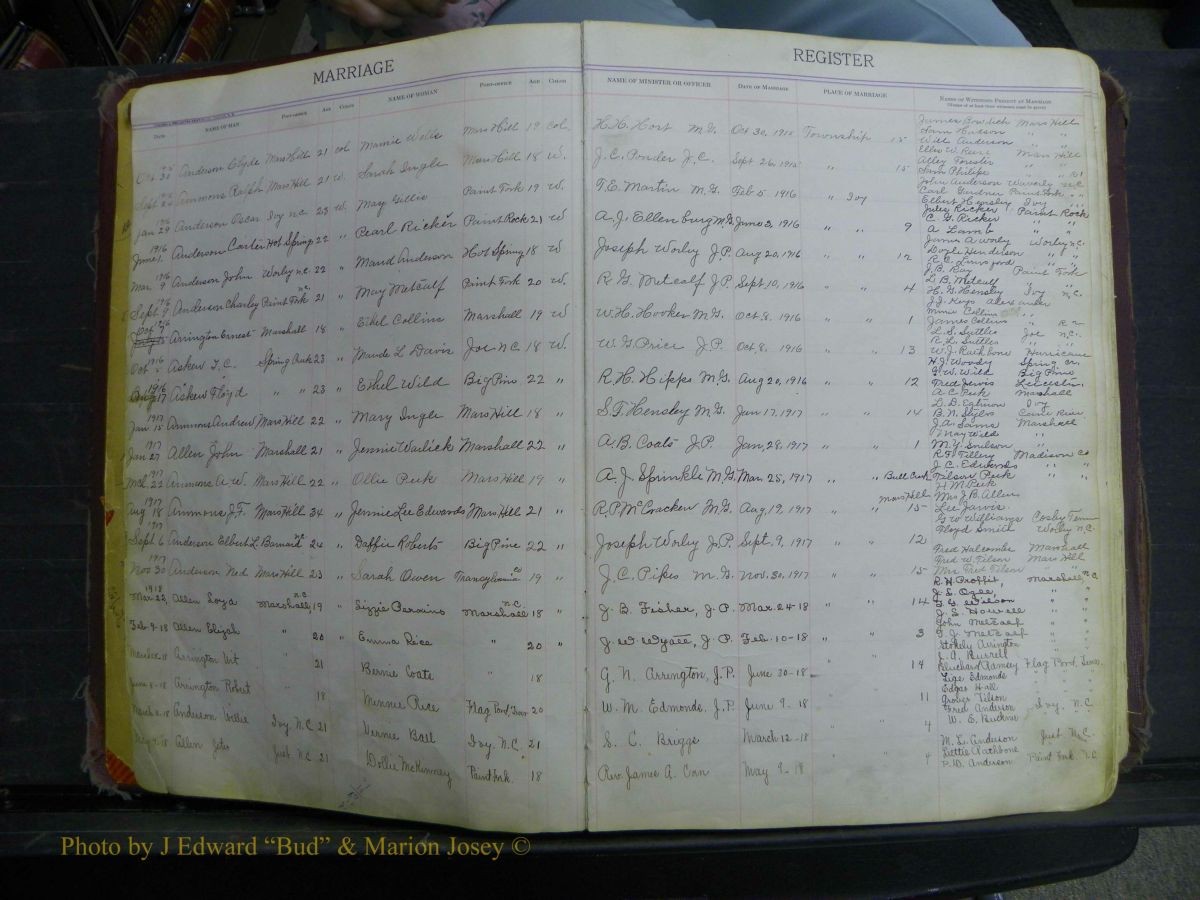 MARRIAGE
REGISTER
DATE NAME OF MAN POST-OFFICE AGE COLOR NAME OF WOMAN POST-OFFICE AGE COLOR NAME OF MINISTER OR OFFICER DATE OF MARRIAGE PLACE OF MARRIAGE NAMES OF WITNESSES PRESENT AT MARRIAGE
Oct 30 Anderson Clyde Mars Hill 21 col Mamie Mars Hill 19 col. H. H. Hort M.G. Oct 30, 1915 Township 15
James Bowditch Mars Hill
Sam Hudson " "
Will Anderson " "
Sept Ammons Ralph Mars Hill 21 W. Sarah Ingle Mars Hill 18 W. J. C. Ponder J.C. Sept 26, 1915 " 15
Ellis W. Mars Hill
Alley Forester " "
Sam Philips " " R1
Jan 29 Anderson Oscar Ivy n.c. 23 W. May Gillis Paint Fork 19 W. T. E. Martin M.G. Feb 5 1916 " Ivy
John Anderson Waverly n.c.
Carl Gardner Paint Fork
Elbert Hensley Ivy
1916 June 1 Anderson Carter Hot Spring 22 " Pearl Ricker Paint Rock 21 W A. J. Ellenburg M.G. June 3, 1916 " " 9
Jules Ricker Paint Rock
C. G. Ricker
A Lamb " "
1916 Mar. 9 Anderson John Worley n.c. 22 " Maud Anderson Hot Spring 18 W Joseph Worley J.P. Aug 20, 1916 " " 12
James A Worly Worley n.c.
Doyle Henderson " "
R. C. Lunsford " "
1916 Sept 9 Anderson Charley Paint Fork n.c. 21 " May Metcalf Paint Fork 20 W. R G. Metcalf J.P. Sept. 10, 1916 " " 4
J. B. Ray Paint Fork
L. B. Metcalf
H. G. Hensley Ivy n.c.
Oct Arrington Ernest Marshall 18 " Ethel Collins Marshall 19 W W. H. Hooker M.G. Oct. 8, 1916 " " 1
J. J. Keys Alexander
Minnie Collins " "
James Collins " R 2
Oct 1916 Askew T. C. Spring Creek 23 " Maude L Davis Joe N.C 18 W. W. G. Price J.P. Oct 8, 1916 " " 13
L. S. Suttles Joe n.c.
R. L. Suttles " "
W. J. Rathbone Hurricane
1916 Aug 17 Askew Floyd " " 23 " Ethel Wild Big Pine 22 " R. H. Hipps M.G. Aug 20, 1916 " " 12
H. J. Woody Spring Cr.
G. W. Wild Big Pine
Fred Jervis Leicester
1917 Jan 15 Ammons Andrew Mars Hill 22 " Mary Ingle Mars Hill 18 " S. F. Hensley M.G. Jan 17, 1917 " " 14
A C. Peek Marshall
D. D. Eatmon Ivy
B. N. Styles Cane River
1917 Jan 27 Allen John Marshall 21 " Jennie Warlick Marshall 22 " A. B. Coats J.P Jan, 28, 1917 " " 1
J. A. Sams Marshall
May Wild "
M. Y. Snelson "
1917 Mch. 22 Ammons A. W. Mars Hill 22 " Ollie Peek Mars Hill 19 " A. J. Sprinkle M.G. Mar. 25, 1917 " " Bull Creek
R. F. Tillery Madison Co
J. C. Edwards " "
Tilson Peek " "
1917 Aug 18 Ammons J. F. Mars Hill 34 " Jennie Lee Edwards Mars Hill 21 " R. P. McCracken M.G. Aug, 19, 1917 " " Mars Hill 15
H. M. Peek
Mrs J. B. Allen
Lee Jarvis
1917 Sept 6 Anderson Elbert L. Barnard 24 " Daffie Roberts Big Pine 22 " Joseph Worley J.P. Sept. 9, 1917 " " 12
G. W. Williams Cosby Tenn
Floyd Smith Worley n.c.
1917 Nov 30 Anderson Ned Mars Hill 23 " Sarah Owen Transylvania Co 19 " J. C. Pipes M.G. Nov. 30, 1917 " " 15
Fred Halcombe Marshall
Fred W. Tilson Mars Hill
Mrs Fred Tilson " "
1918 Mar 22, Allen Loya Marshall n.c. 19 " Lizzie Perkins Marshall n.c. 18 " J. B. Fisher, J.P. Mar. 24-18 " " 14
R. H. Proffit, Marshall, n.c
J. S. Ogle, " "
T. G. Wilson " "
Feb-9-18 Allen Elijah " 20 " Emma Rice " 20 " J. W. Wyatt, J.P. Feb. 10-18 " " 3
J. S. Howell " "
John Metcalf " "
T. J. Metcalf " "
Arrington Vit 21 Bernie Coats " 18 G. N. Arrington, J.P. June 30-18 14
Stokely Arrington
J. A. Burrell
Blanchard Ramsey Flag Pond, Tenn.
June 8-18 Arrington Robert " 18 Minnie Rice Flag Pond Tenn 20 W. M. Edmonds, J.P. June 9-18 11
Lige Edmonds
Edgar Hall
Grover Tilson
March 8-18 Anderson Hollie Ivy, N.C 21 Vernie Ball Ivy, N.C. 21 S. C. Briggs March 12-18 4
Fred Anderson Ivy, N.C
W. E. Buckner
May 7-18 Allen Jeter Just N.C 21 Dollie McKinney Paint Fork. 18 Rev. James A. Corn May 9-18 4
M. L. Anderson Just N.C.
Lettie Rathbone
P. W. Anderson Paint Fork. N.C
Photo by J Edward “Bud” & Marion Josey ©